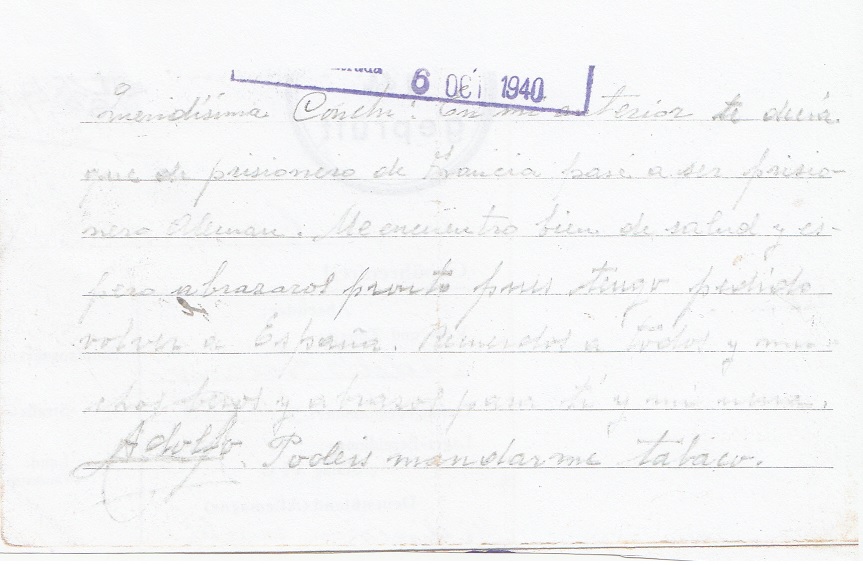 6 OCT 1940
Queridísima Conchi: En mi anterior te decía
que de prisionero de Francia pasé a ser prisio-
nero Aleman. Me encuentro bien de salud y es-
pero abrazaros pronto pues tengo pedido
volver a España. Recuerdos a todos y mu-
chos besos y abrazos para ti y mi nena.
Adolfo. Podeis mandarme tabaco.